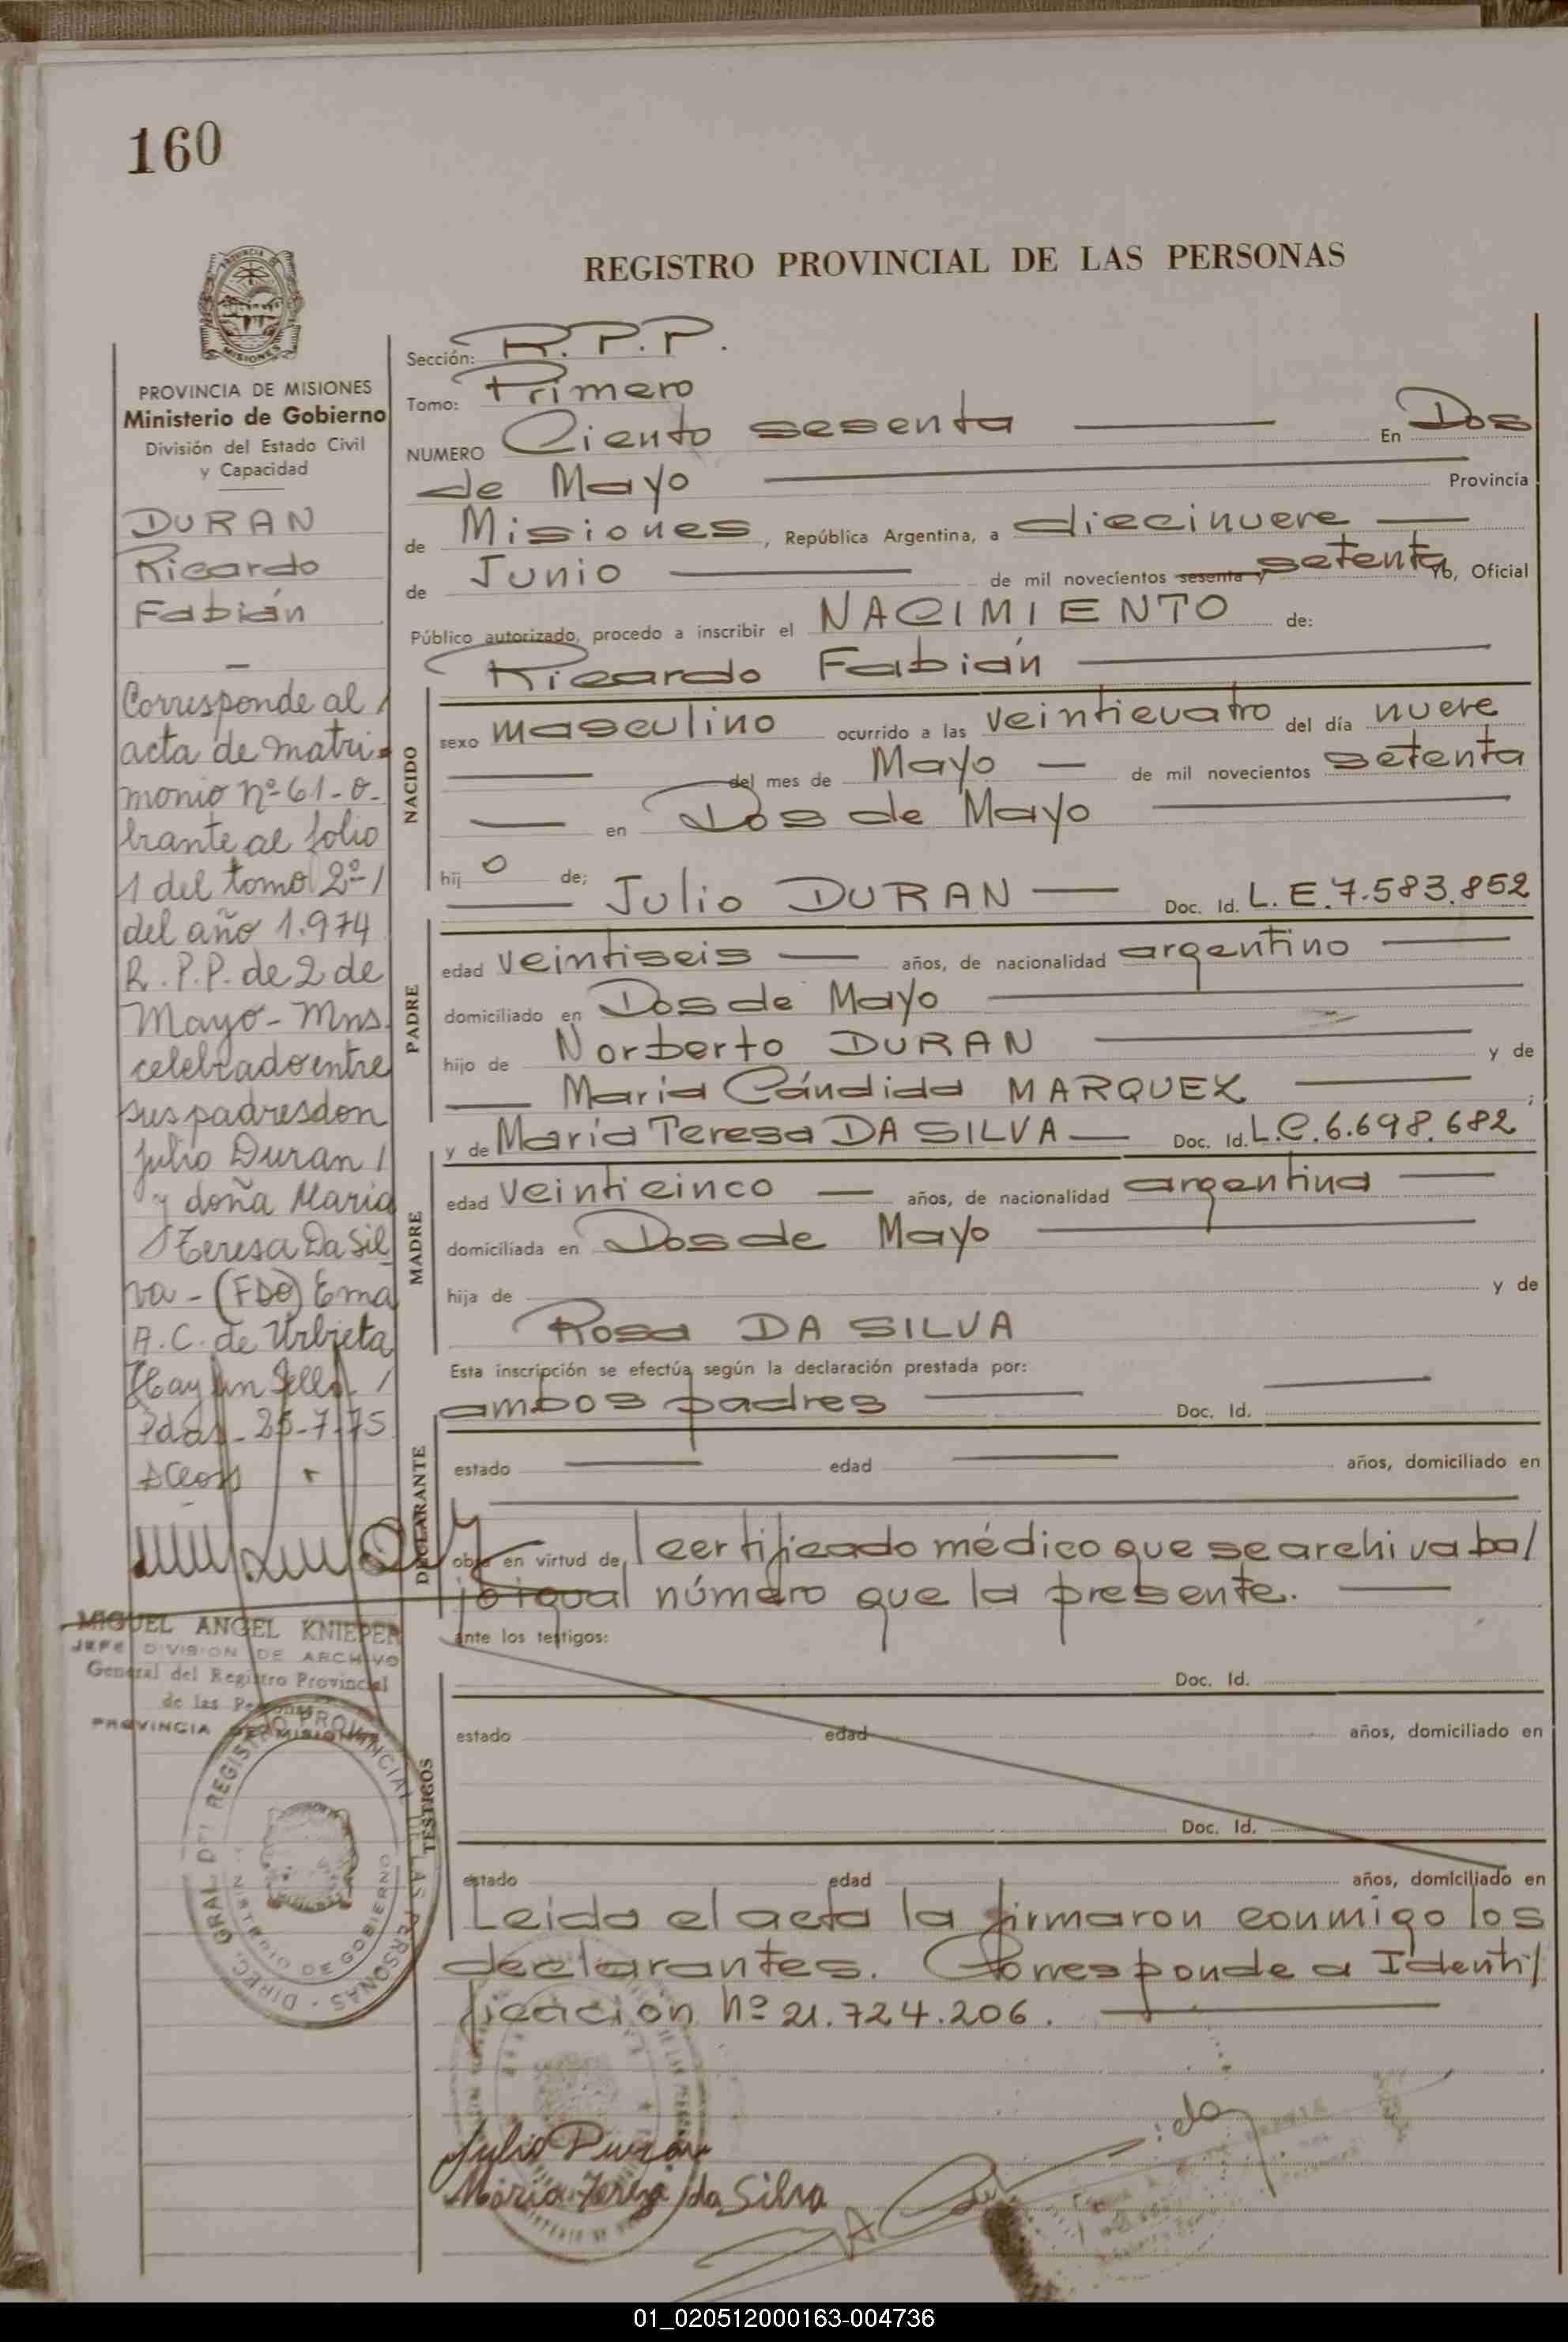 160
REGISTRO PROVINCIAL DE LAS PERSONAS
MISIONES
PROVINCIA DE MISIONES
Ministerio de Gobierno
División del Estado Civil
y Capacidad
DURAN
Ricardo
Fabián
Corresponde al /
acta de matri-
monio nº 61-o-
brante al folio
1 del tomo 2º /
del año 1.974
R.P.P. de 2 de
Mayo - Mns.
celebrado entre
sus padres don
Julio Duran /
y doña Maria
Teresa Da Sil
va - (FDO) Ema
A. C. de Urbieta
Hay un Sello. /
Pdas - 25-7-75
MIGUEL ANGEL KNIEPER
JEFE DIVISION DE ARCHIVO
General del Registro Provincial
de las Personas
PROVINCIA DE MISIONES
DIREC. GRAL DEL REGISTRO PROVINCIAL DE LAS PERSONAS -
MINISTERIO DE GOBIERNO
Sección: R.P.P.
Tomo: Primero
NUMERO Ciento sesenta En Dos
de Mayo Provincia
de Misiones, República Argentina, a diecinueve
de Junio de mil novecientos sesenta y setenta Yo, Oficial
Público autorizado, procedo a inscribir el NACIMIENTO de:
Ricardo Fabián
NACIDO
sexo masculino ocurrido a las veinticuatro del día nueve
del mes de Mayo de mil novecientos setenta
en Dos de Mayo
hij o de; Julio DURAN Doc. Id. L.E. 7.583.852
PADRE
edad veintiseis años, de nacionalidad argentino
domiciliado en Dos de Mayo
hijo de Norberto DURAN y de
Maria Cándida MARQUEZ ;
y de Maria Teresa DA SILVA Doc. Id. L.C. 6.698.682
MADRE
edad veinticinco años, de nacionalidad argentina
domiciliada en Dos de Mayo
hija de y de
Rosa DA SILVA
Esta inscripción se efectúa según la declaración prestada por:
ambos padres Doc. Id.
DECLARANTE
estado edad años, domiciliado en
obra en virtud de l certificado médico que se archiva ba/
jo igual número que la presente.
ante los testigos:
Doc. Id.
TESTIGOS
estado edad años, domiciliado en
Doc. Id.
estado edad años, domiciliado en
Leida el acta la firmaron conmigo los
declarantes. Corresponde a Identi/
ficación Nº 21.724.206.
Julio Duran
Maria Teresa da Silva
01_020512000163-004736